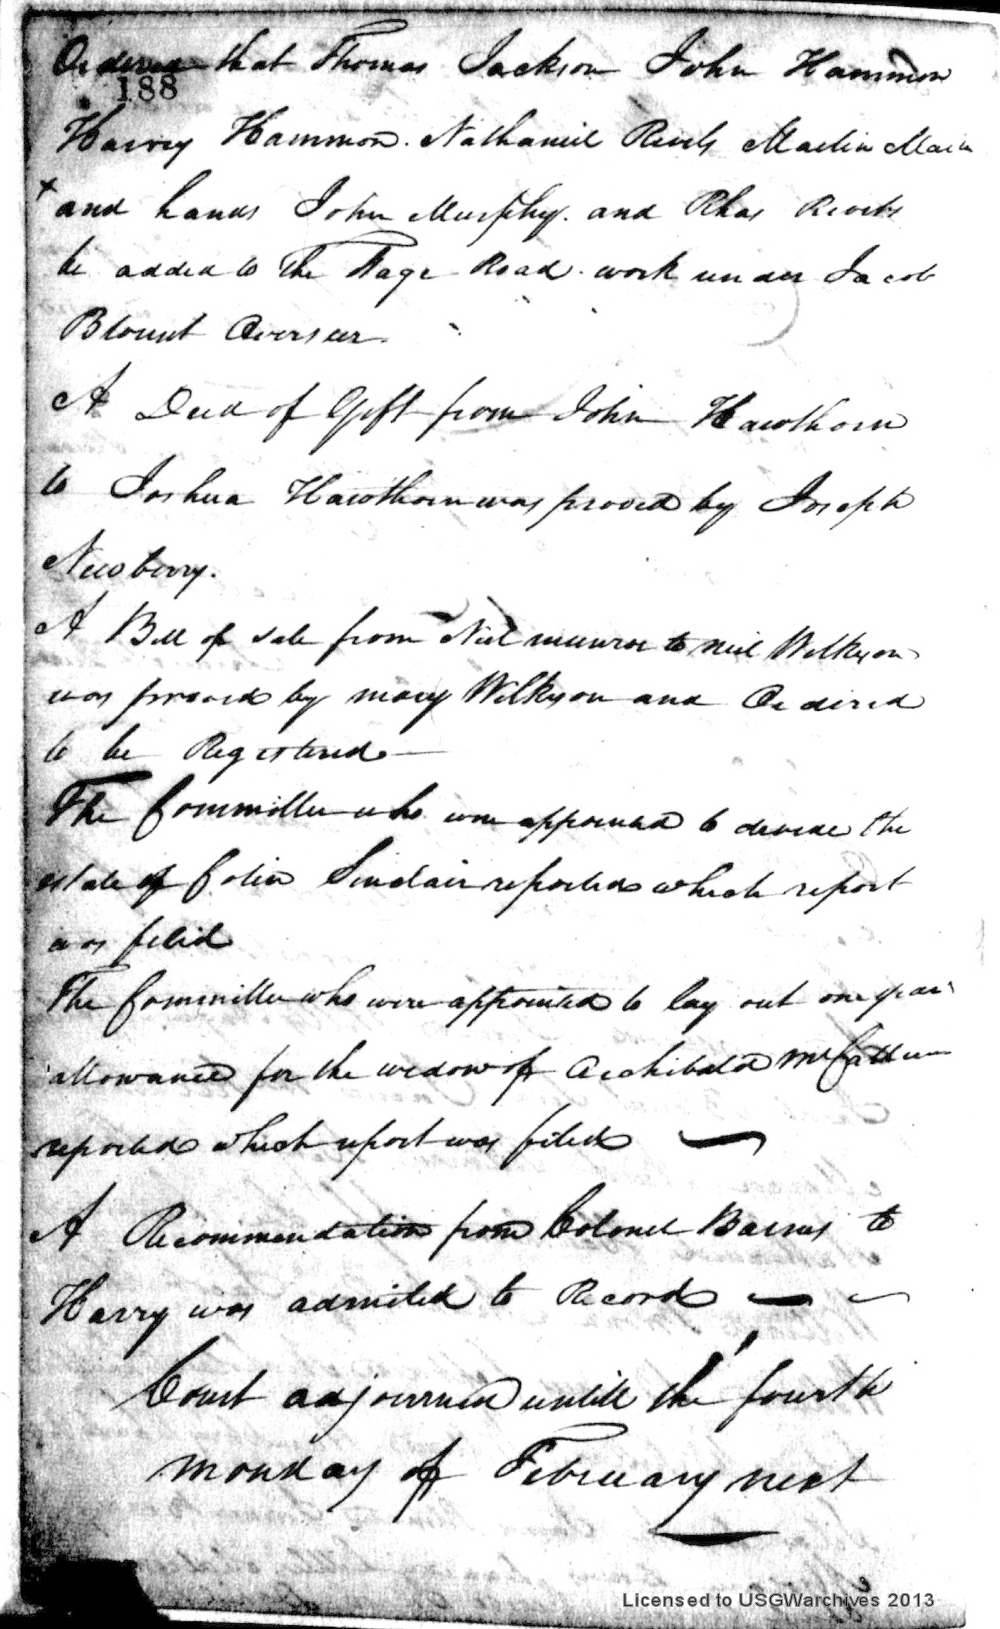 Ordered that Thomas Jackson John Hammon
188
Harvey Hammon. Nathaniel Revels Martin
and hands John Murphy. and Rhas Revels
be added to the Stage Road. work under Jacob
Blount Overseer.
A Deed of Gift from John Hawthorn
to Joshua Hawthorn was proved by Joseph
Newberry.
A Bill of Sale from Niel munroe to neil Wilkyson
was proved by mary Wilkyson and Ordered
to be Registered
The Committee who were appointed to devide the
estate of Colin Sinclair reported which report
was filed
The Committee who were appointed to lay out one year
allowance for the widow of Archibald McCallum
reported which report was filed
A Recommendation from Colonel Barnes to
Harry was admited to Record
Court adjourned untill the fourth
monday of February next
Licensed to USGWarchives 2013